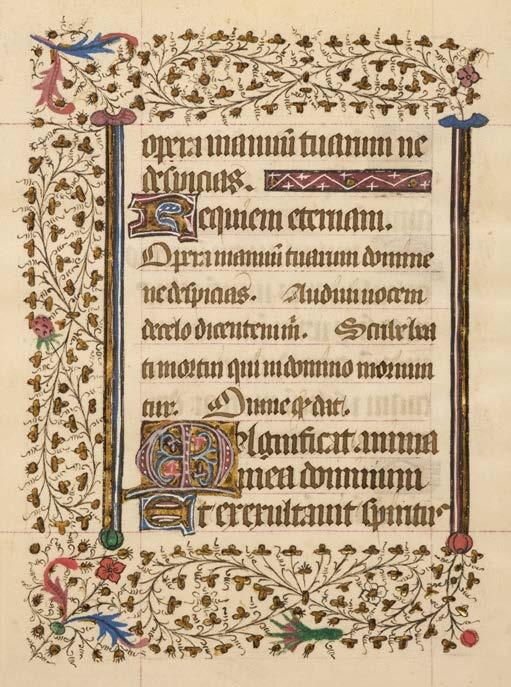 opera manuū tuarum ne
despicias.
Requiem eternam.
Opera manuū tuarum domine
ne despicias. Audivi vocem
de celo dicentem m̄. Scribe bea
ti mortui qui in domino moriun
tur. Omne q̄ dat.
Magnificat. anima
mea dominum
Et exexultauit spiritus